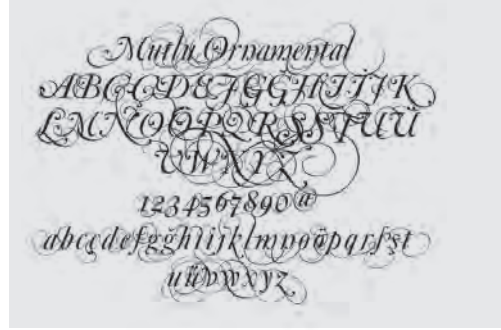 Mutlu Ornamental
ABCÇDEFGĞHIİJK
LMNOÖPQRSŞTUÜ
VWXYZ
1234567890@
abcçdefgğhıijklmnoöpqrsşt
uüvwxyz